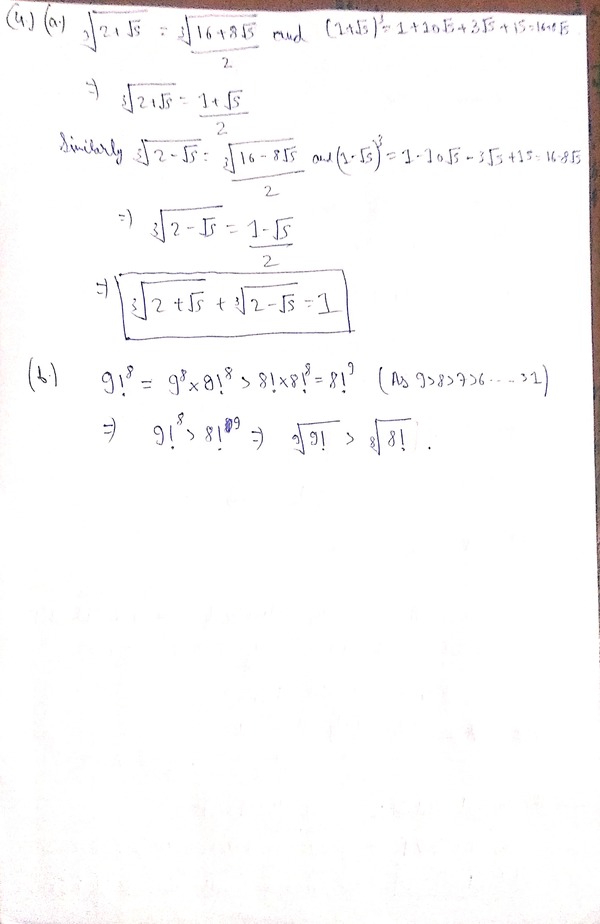 (4.) (a.) ∛(2+√5) = ∛(16+8√5)/2 and (1+√5)³ = 1+10√5+3√5+15 = 16+8√5
=) ∛(2+√5) = (1+√5)/2
Similarly ∛(2-√5) = ∛(16-8√5)/2 and (1-√5)³ = 1-10√5-3√5+15 = 16-8√5
=) ∛(2-√5) = (1-√5)/2
=) ∛(2+√5) + ∛(2-√5) = 1
(b.) 9!⁸ = 9⁸ x 8!⁸ > 8! x 8!⁸ = 8!⁹ (As 9>8>7>6.....>1)
=) 9!⁸ > 8!⁹ =) ⁹√9! > ⁸√8! .